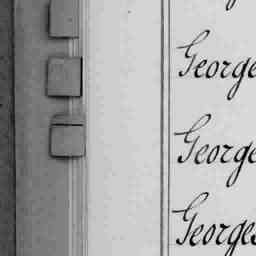 George
George
Georges